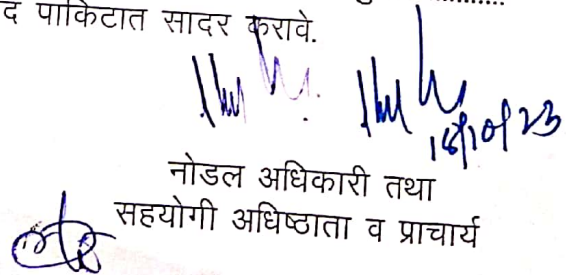 द पाकिटात सादर करावे.
नोडल अधिकारी तथा
सहयोगी अधिष्ठाता व प्राचार्य